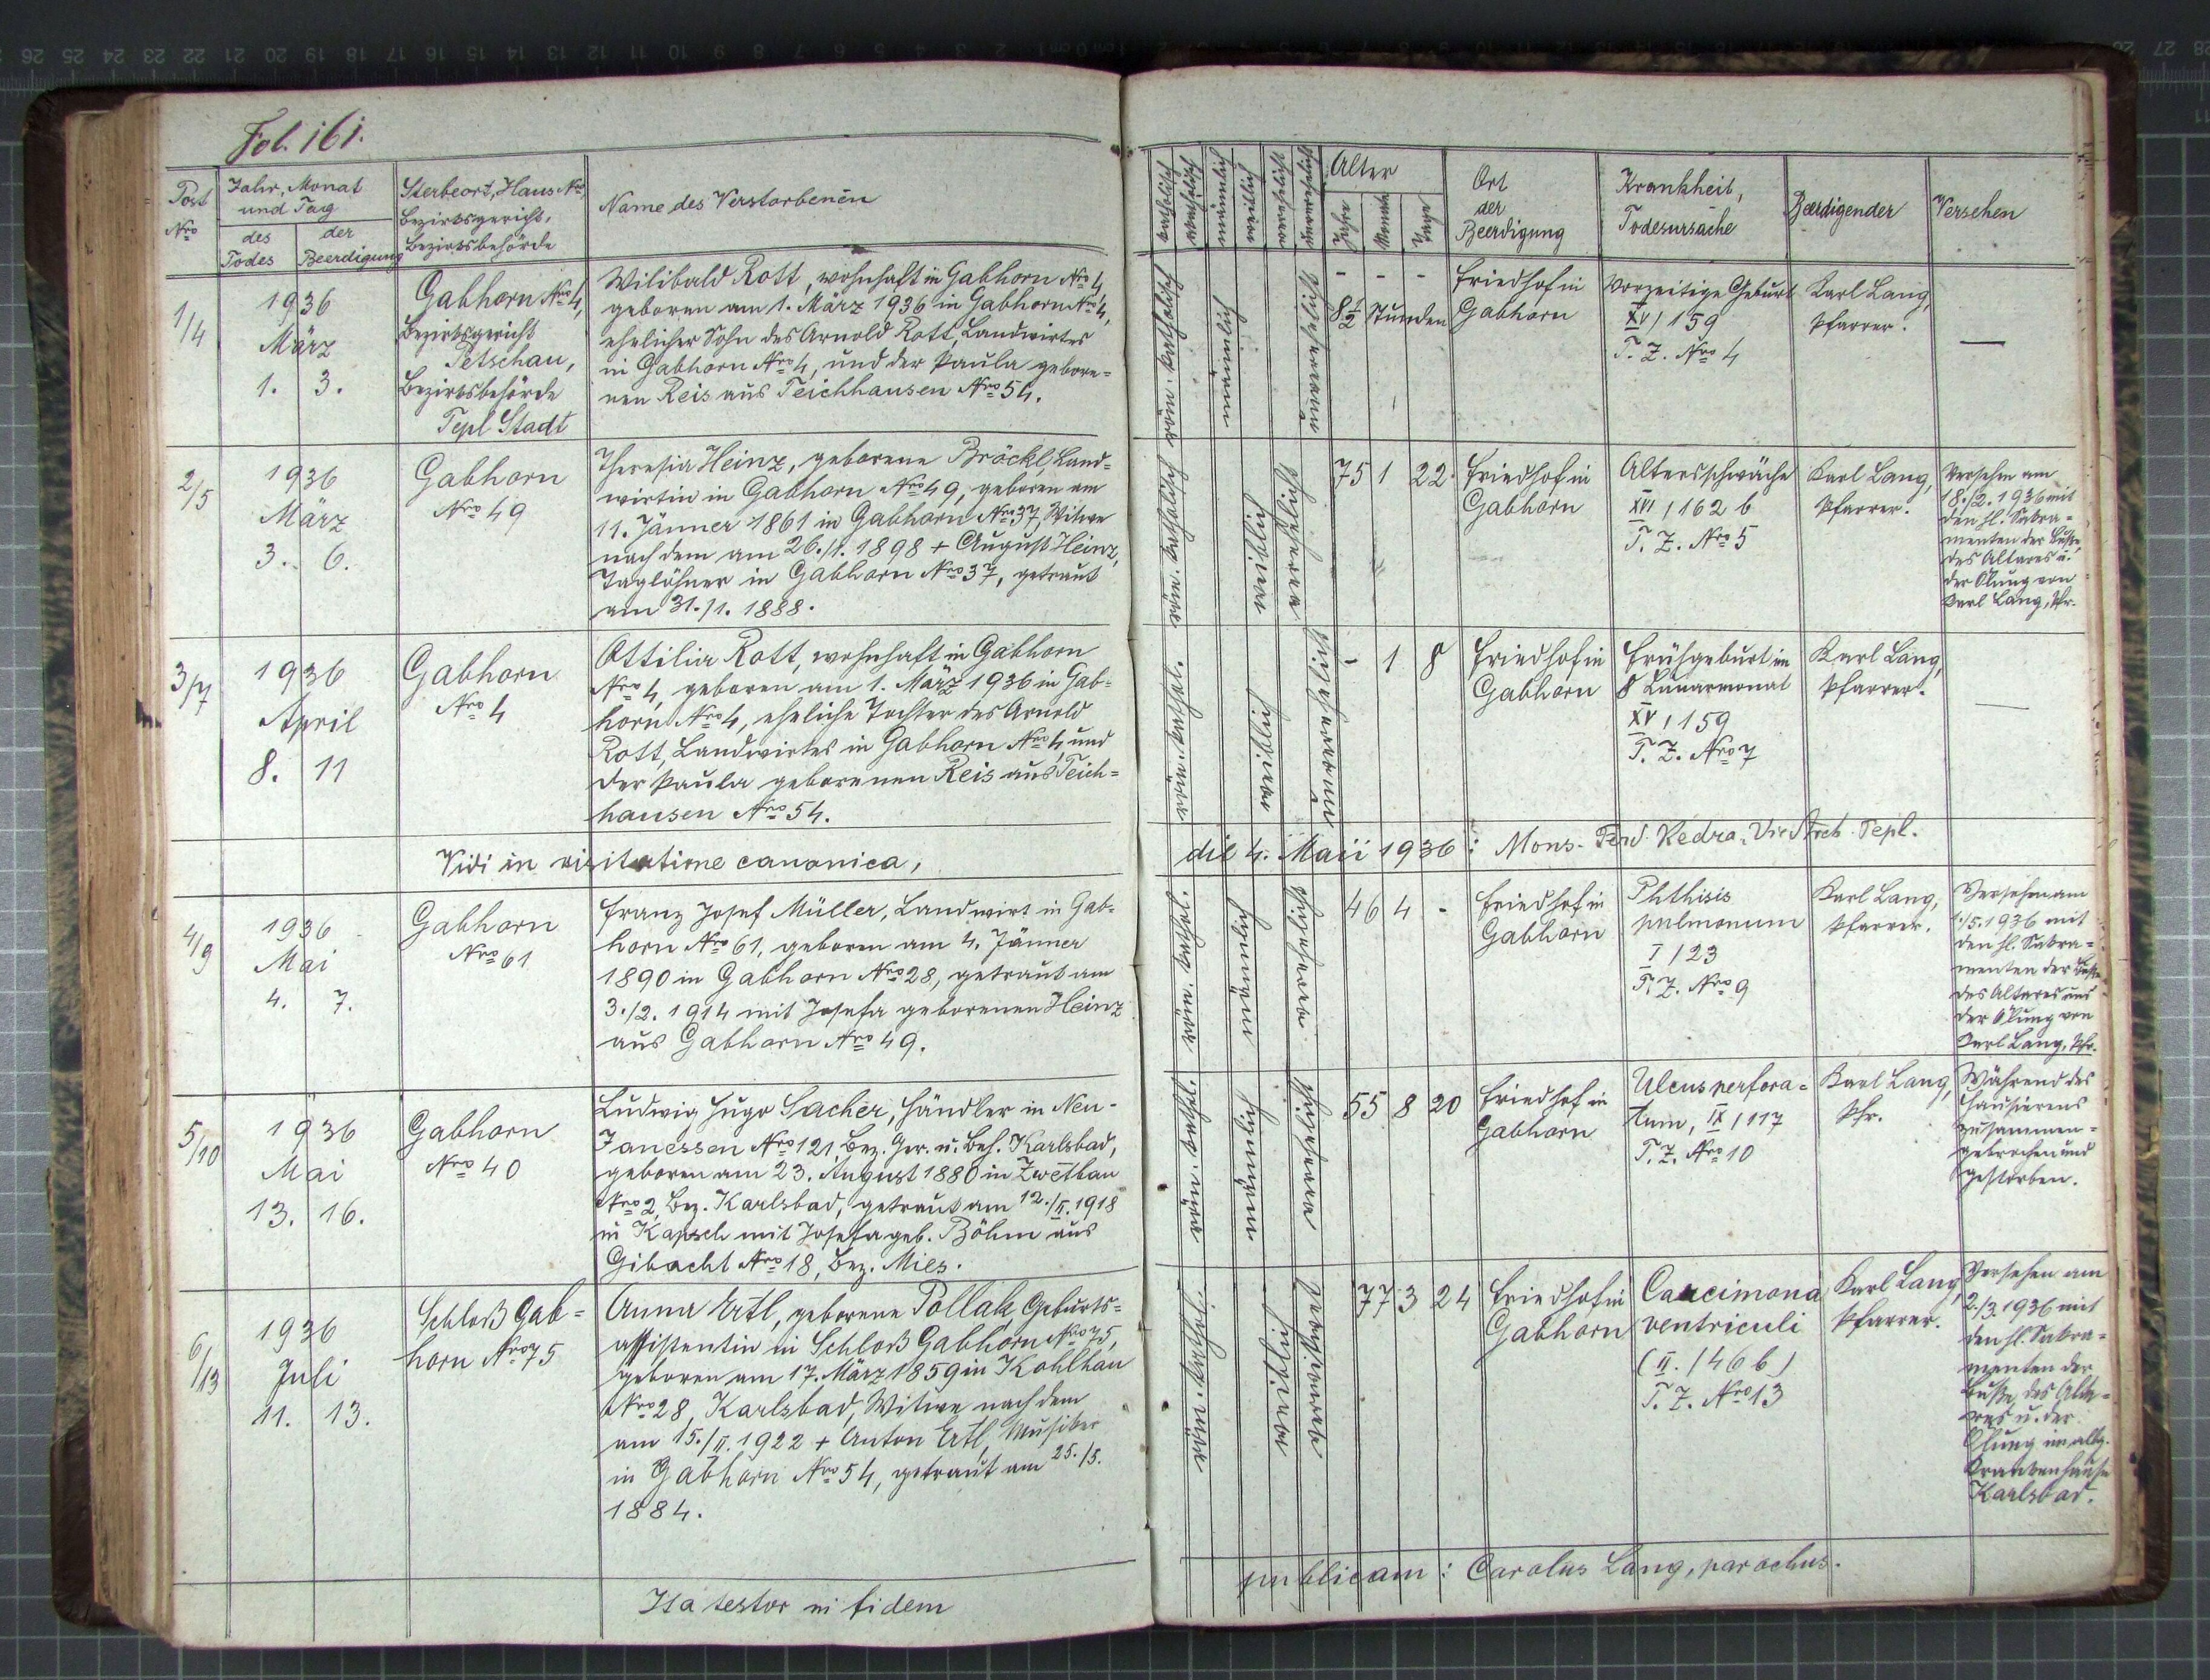 Fol. 161.
Post Nro
Jahr, Monat und Tag
des Todes
der Beerdigung
Sterbeort, Haus Nro,
Bezirksgericht,
Bezirksbehörde
Name des Verstorbenen
katholisch
männlich
weiblich
Alter
Jahre
Monate
Tage
Ort
der
Beerdigung
Krankheit,
Todesursache
Beerdigender
Versehen
1/4
1936
März
1. 3.
Gabhorn Nro 4,
Bezirksgericht
Petschau,
Bezirksbehörde
Tepl Stadt
Wilibald Rott, wohnhaft in Gabhorn Nro 4,
geboren am 1. März 1936 in Gabhorn Nro 4,
ehelicher Sohn des Arnold Rott, Landwirtes
in Gabhorn Nro 4, und der Paula gebore=
nen Reis aus Teichhausen Nro 54.
röm. katholisch
männlich
unverehelicht
- - -
8 1/2 Stunden
Friedhof in
Gabhorn
Vorzeitige Geburt
XV/159
T. Z. Nro 4
Karl Lang,
Pfarrer.
—
2/5
1936
März
3. 6.
Gabhorn
Nro 49
Theresia Heinz, geborene Bröckl, Land=
wirtin in Gabhorn Nro 49, geboren am
11. Jänner 1861 in Gabhorn Nro 37, Witwe
nach dem am 26./1. 1898 + August Heinz,
Taglöhner in Gabhorn Nro 37, getraut
am 31./1. 1888.
röm. katholisch
weiblich
verehelicht
75 1 22
Friedhof in
Gabhorn
Altersschwäche
XVI/162 b
T. Z. Nro 5
Karl Lang,
Pfarrer.
Versehen am
18./2. 1936 mit
den hl. Sakra=
menten der Buße,
des Altares u.
der Ölung von
Karl Lang, Pfr.
3/7
1936
April
8. 11
Gabhorn
Nro 4
Ottilia Rott, wohnhaft in Gabhorn
Nro 4, geboren am 1. März 1936 in Gab=
horn Nro 4, eheliche Tochter des Arnold
Rott, Landwirtes in Gabhorn Nro 4, und
der Paula geborenen Reis aus Teich=
hausen Nro 54.
röm. kathol.
weiblich
unverehelicht
- 1 8
Friedhof in
Gabhorn
Frühgeburt im
8 Lunarmonat
XV/159
T. Z. Nro 7
Karl Lang,
Pfarrer.
—
Vidi in visitatione canonica, die 4. Maii 1936: Mons. Ferd. Kedra, Vic Arch. Tepl.
4/9
1936
Mai
4. 7.
Gabhorn
Nro 61
Franz Josef Müller, Landwirt in Gab=
horn Nro 61, geboren am 4. Jänner
1890 in Gabhorn Nro 28, getraut am
3./2. 1914 mit Josefa geborenen Heinz
aus Gabhorn Nro 49.
röm. kathol.
männlich
verehelicht
46 4 -
Friedhof in
Gabhorn
Phthisis
pulmonum
I/23
T. Z. Nro 9
Karl Lang,
Pfarrer.
Versehen am
1./5. 1936 mit
den hl. Sakra=
menten der Buße
des Altares und
der Ölung von
Karl Lang, Pfr.
5/10
1936
Mai
13. 16.
Gabhorn
Nro 40
Ludwig Hugo Sacher, Händler in Neu-
Janessen Nro 121, Bez. Ger. u. Beh. Karlsbad,
geboren am 23. August 1880 in Zwetbau
Nro 2, Bez. Karlsbad, getraut am 12./II. 1918
in Kapsch mit Josefa geb. Böhm aus
Gibacht Nro 18, Bez. Mies.
röm. kathol.
männlich
verehelicht
55 8 20
Friedhof in
Gabhorn
Ulcus perfora=
tum, IX/117
T. Z. Nro 10
Karl Lang,
Pfr.
Während des
Hausierens
zusammen=
gebrochen und
gestorben.
6/13
1936
Juli
11. 13.
Schloß Gab=
horn Nro 75
Anna Ertl, geborene Pollak, Geburts=
assistentin in Schloß Gabhorn Nro 75,
geboren am 17. März 1859 in Kohlhau
Nro 28, Karlsbad, Witwe nach dem
am 15./II. 1922 + Anton Ertl, Musiker
in Gabhorn Nro 54, getraut am 25./5.
1884.
röm. kathol.
weiblich
verwitwet
77 3 24
Friedhof in
Gabhorn
Carcimona
ventriculi
(II./46 b)
T. Z. Nro 13
Karl Lang,
Pfarrer.
Versehen am
2./3. 1936 mit
den hl. Sakra=
menten der
Buße, des Alta=
res u. der
Ölung im allg.
Krankenhause
Karlsbad.
Ita testor in fidem publicam: Carolus Lang, parochus.